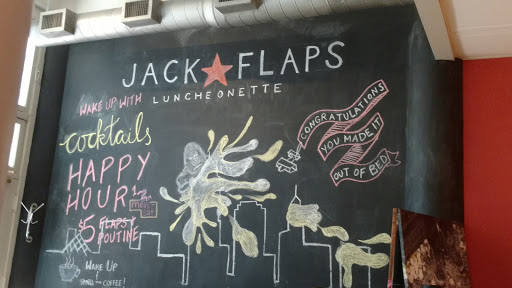 JACK ★ FLAPS
LUNCHEONETTE
WAKE UP WITH
cocktails
HAPPY
HOUR!
$5 FLAPS /
POUTINE
WAKE UP
SMELL COFFEE!
CONGRATULATIONS
YOU MADE IT
OUT OF BED!